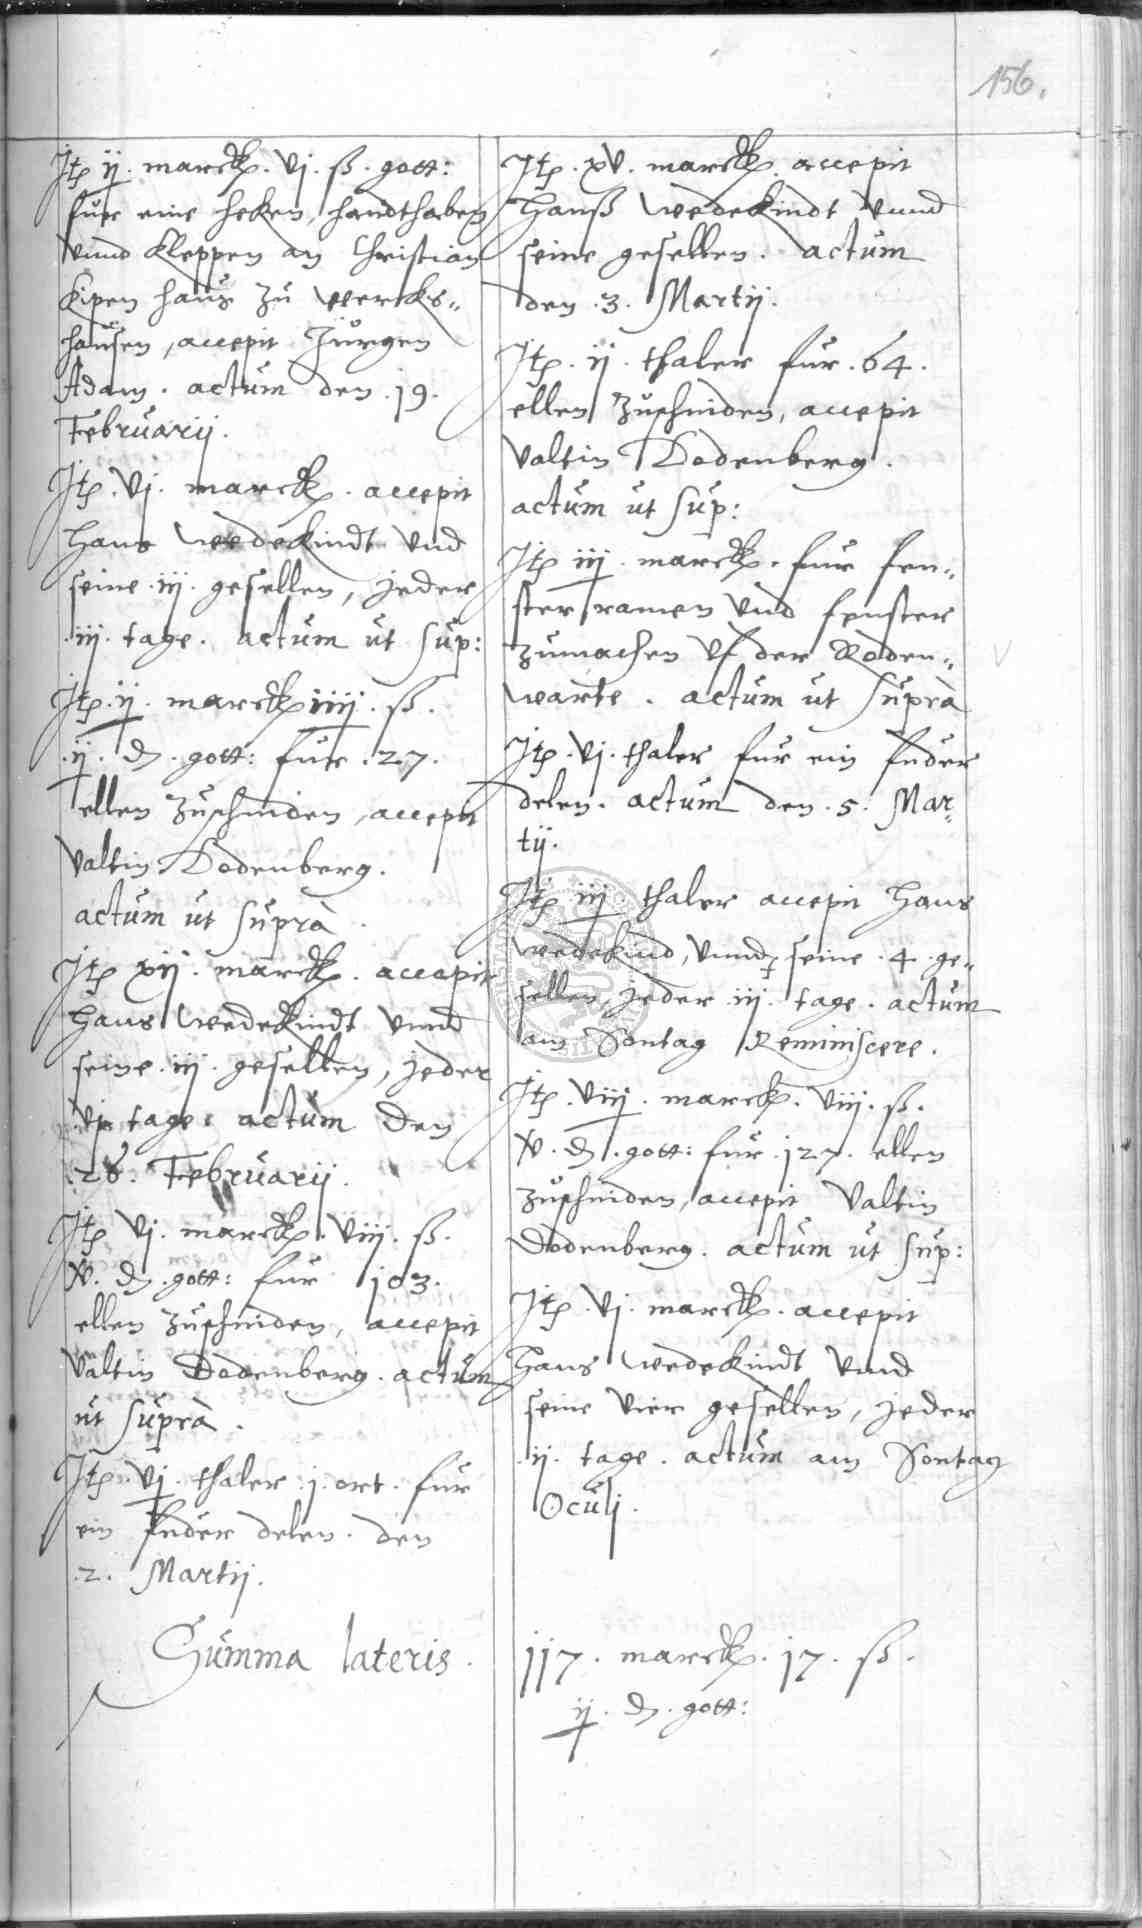 156.
Jtem ij. marck. vj. ß. gott:
fur eine heken, handthaben
vnnd kleppen an Christian
Kipen haus zu wercks=
hausen, accepit Jürgen
Adam. actum den .19.
Februarij.
Jtem. vj. marck. accepit
Hans Wedekindt vnd
seine .iij. gesellen, jeder
.iij. tage. actum ut sup:
Jtem .ij. marck iiij. ß.
.ij. d. gott: fur .27.
ellen zuschniden, accepit
Valtin Dodenberg.
actum ut suprà.
Jtem xij. marck. accepit
Hans Wedekindt vnnd
seine .iij. gesellen, jeder
vj tage. actum den
.26. Februarij.
Jtem vj. marck. viij. ß.
x. d. gott: fur 103.
ellen zuschniden, accepit
Valtin Dodenberg. actum
ut suprà.
Jtem. vj. thaler .j. ort. fur
ein fuder delen. den
.2. Martij.
Jtem. xv. marck. accepit
Hanß Wedekindt vnnd
seine gesellen. actum
den .3. Martij.
Jtem. ij. thaler fur .64.
ellen zuschniden, accepit
Valtin Dodenberg.
actum ut sup:
Jtem iij. marck. fur fen=
ster ramen vnd fenster
zumachen vf der Roden=
warte. actum ut suprà
Jtem. vj. thaler fur ein fuder
delen. actum den .5. Mar=
tij.
Jtem iij thaler accepit Hans
Wedekind, vnnd seine .4. ge=
sellen, jeder iij. tage. actum
am Sontag Reminiscere.
Jtem. viij. marck. viij. ß.
x. d. gott: fur .127. ellen
zuschniden, accepit Valtin
Dodenberg. actum ut sup:
Jtem. vj. marck. accepit
Hans Wedekindt vnd
seine vier gesellen, jeder
.ij. tage. actum am Sontag
Oculj.
Summa lateris. 117. marck. 17. ß.
ij. d. gott: